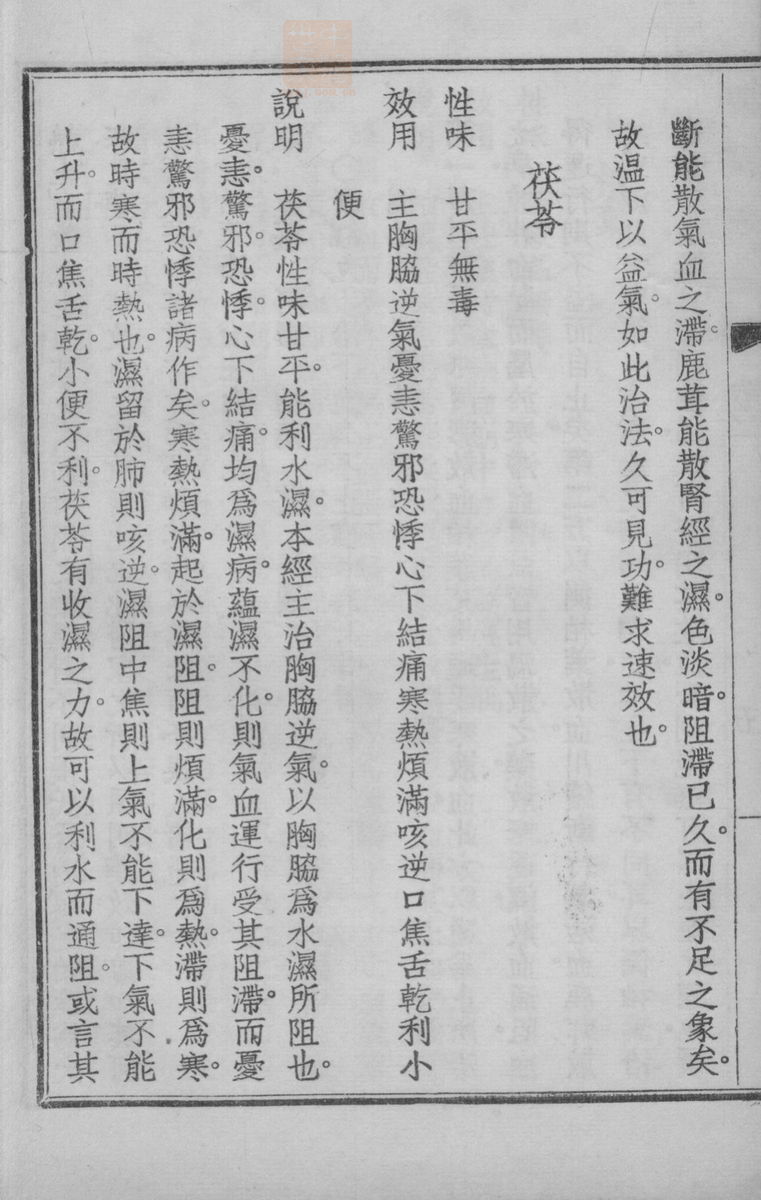 斷能散氣血之滯。鹿茸能散腎經之濕。色淡暗。阻滯已久。而有不足之象矣。
故温下以益氣。如此治法。久可見功。難求速效也。
茯苓
性味　甘平無毒
效用　主胸脇逆氣憂恚驚邪恐悸心下結痛寒熱煩滿咳逆口焦舌乾利小
便
說明　茯苓性味甘平。能利水濕。本經主治胸脇逆氣。以胸脇爲水濕所阻也。
憂恚。驚邪。恐悸。心下結痛。均爲濕病。蘊濕不化。則氣血運行受其阻滯。而憂
恚驚邪恐悸諸病作矣。寒熱煩滿。起於濕阻。阻則煩滿。化則爲熱。滯則爲寒。
故時寒而時熱也。濕留於肺則咳逆。濕阻中焦則上氣不能下達。下氣不能
上升。而口焦舌乾。小便不利。茯苓有收濕之力。故可以利水而通阻。或言其